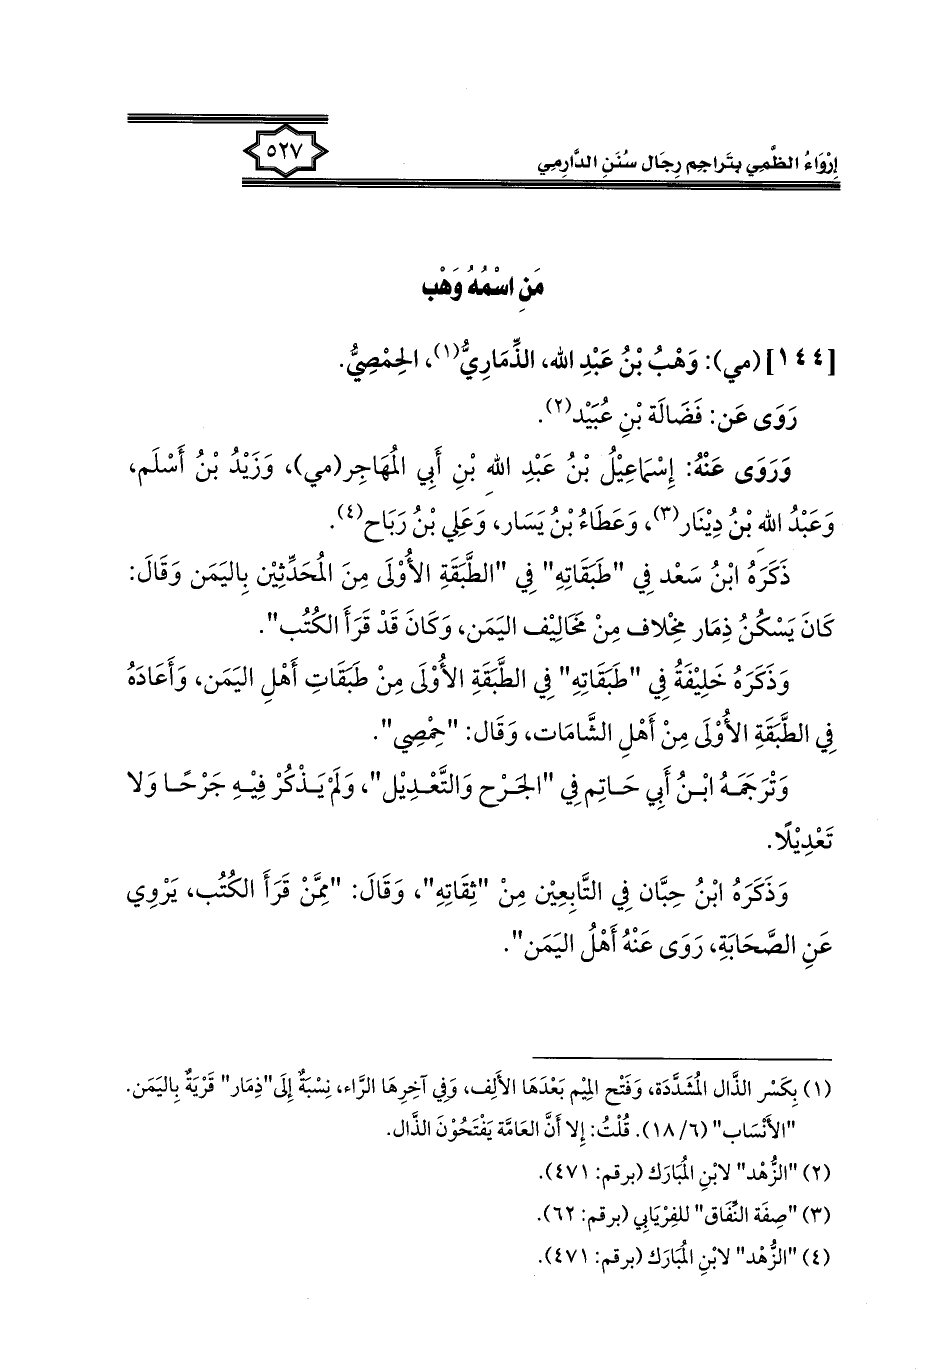 إِرْوَاءُ الظَّمِي بِتَراجِمِ رِجَالِ سُنَنِ الدَّارِمِي
٥٢٧
مَنِ اسْمُهُ وَهْب
[١٤٤] (مي): وَهْبُ بْنُ عَبْدِ الله، الذِّمَارِيُّ(١)، الحِمْصِيُّ.
رَوَى عَن: فَضَالَة بْنِ عُبَيْد(٢).
وَرَوَى عَنْهُ: إِسْمَاعِيْلُ بْنُ عَبْدِ الله بْنِ أَبي المُهَاجِر(مي)، وَزَيْدُ بْنُ أَسْلَم،
وَعَبْدُ الله بْنُ دِيْنَار(٣)، وَعَطَاءُ بْنُ يَسَار، وَعَلِي بْنُ رَبَاح(٤).
ذَكَرَهُ ابْنُ سَعْد فِي "طَبَقَاتِهِ" فِي "الطَّبَقَةِ الأُوْلَى مِنَ المُحَدِّثِيْن بِاليَمَن وَقَالَ:
كَانَ يَسْكُنُ ذِمَار مِخْلاف مِنْ مَخَالِيْف اليَمَن، وَكَانَ قَدْ قَرَأَ الكُتُب".
وَذَكَرَهُ خَلِيْفَةُ فِي "طَبَقَاتِهِ" فِي الطَّبَقَةِ الأُوْلَى مِنْ طَبَقَاتِ أَهْلِ اليَمَن، وَأَعَادَهُ
فِي الطَّبَقَةِ الأُوْلَى مِنْ أَهْلِ الشَّامَات، وَقَالَ: "حِمْصِي".
وَتَرْجَمَهُ ابْنُ أَبي حَاتِم فِي "الجَرْح وَالتَّعْدِيْل"، وَلَمْ يَذْكُرْ فِيْهِ جَرْحًا وَلا
تَعْدِيْلًا.
وَذَكَرَهُ ابْنُ حِبَّان فِي التَّابِعِيْن مِنْ "ثِقَاتِهِ"، وَقَالَ: "مِمَّنْ قَرَأَ الكُتُب، يَرْوِي
عَنِ الصَّحَابَةِ، رَوَى عَنْهُ أَهْلُ اليَمَن".
(١) بِكَسْر الذَّال المُشَدَّدَة، وَفَتْح المِيْم بَعْدَهَا الأَلِف، وَفي آخِرِهَا الرَّاء، نِسْبَةٌ إِلَى"ذِمَار" قَرْيَةٌ بِاليَمَن.
"الأَنْسَاب" (٦/ ١٨). قُلْتُ: إِلا أَنَّ العَامَّة يَفْتَحُوْنَ الذَّال.
(٢) "الزُّهْد" لابْنِ المُبَارَك (برقم: ٤٧١).
(٣) "صِفَة النِّفَاق" للفِرْيَابي (برقم: ٦٢).
(٤) "الزُّهْد" لابْنِ المُبَارَك (برقم: ٤٧١).